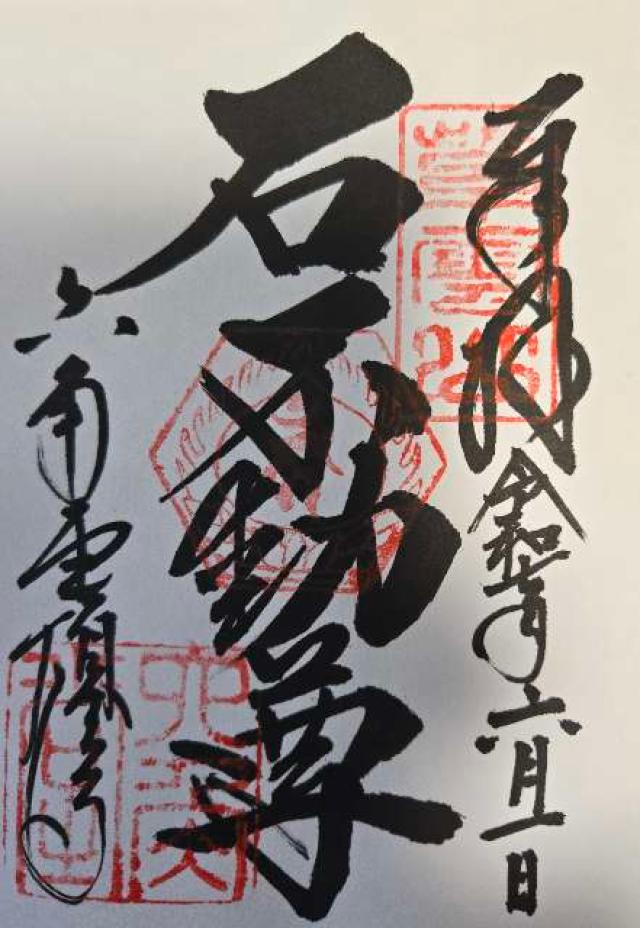 奉拝 令和七年六月一日
石不動尊
六角堂頂法寺